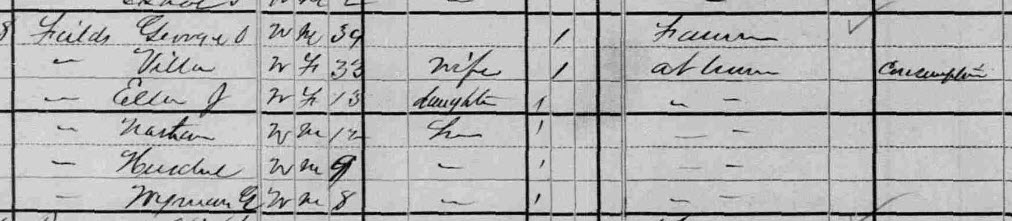 8 Fields George O W M 34 / Farmer
" Villa W F 33 Wife / at home Consumption
" Ellen J W F 13 daughter / " "
" Nathan W M 12 Son / " "
" W M 9 " /
" Wyman G W M 8 " /